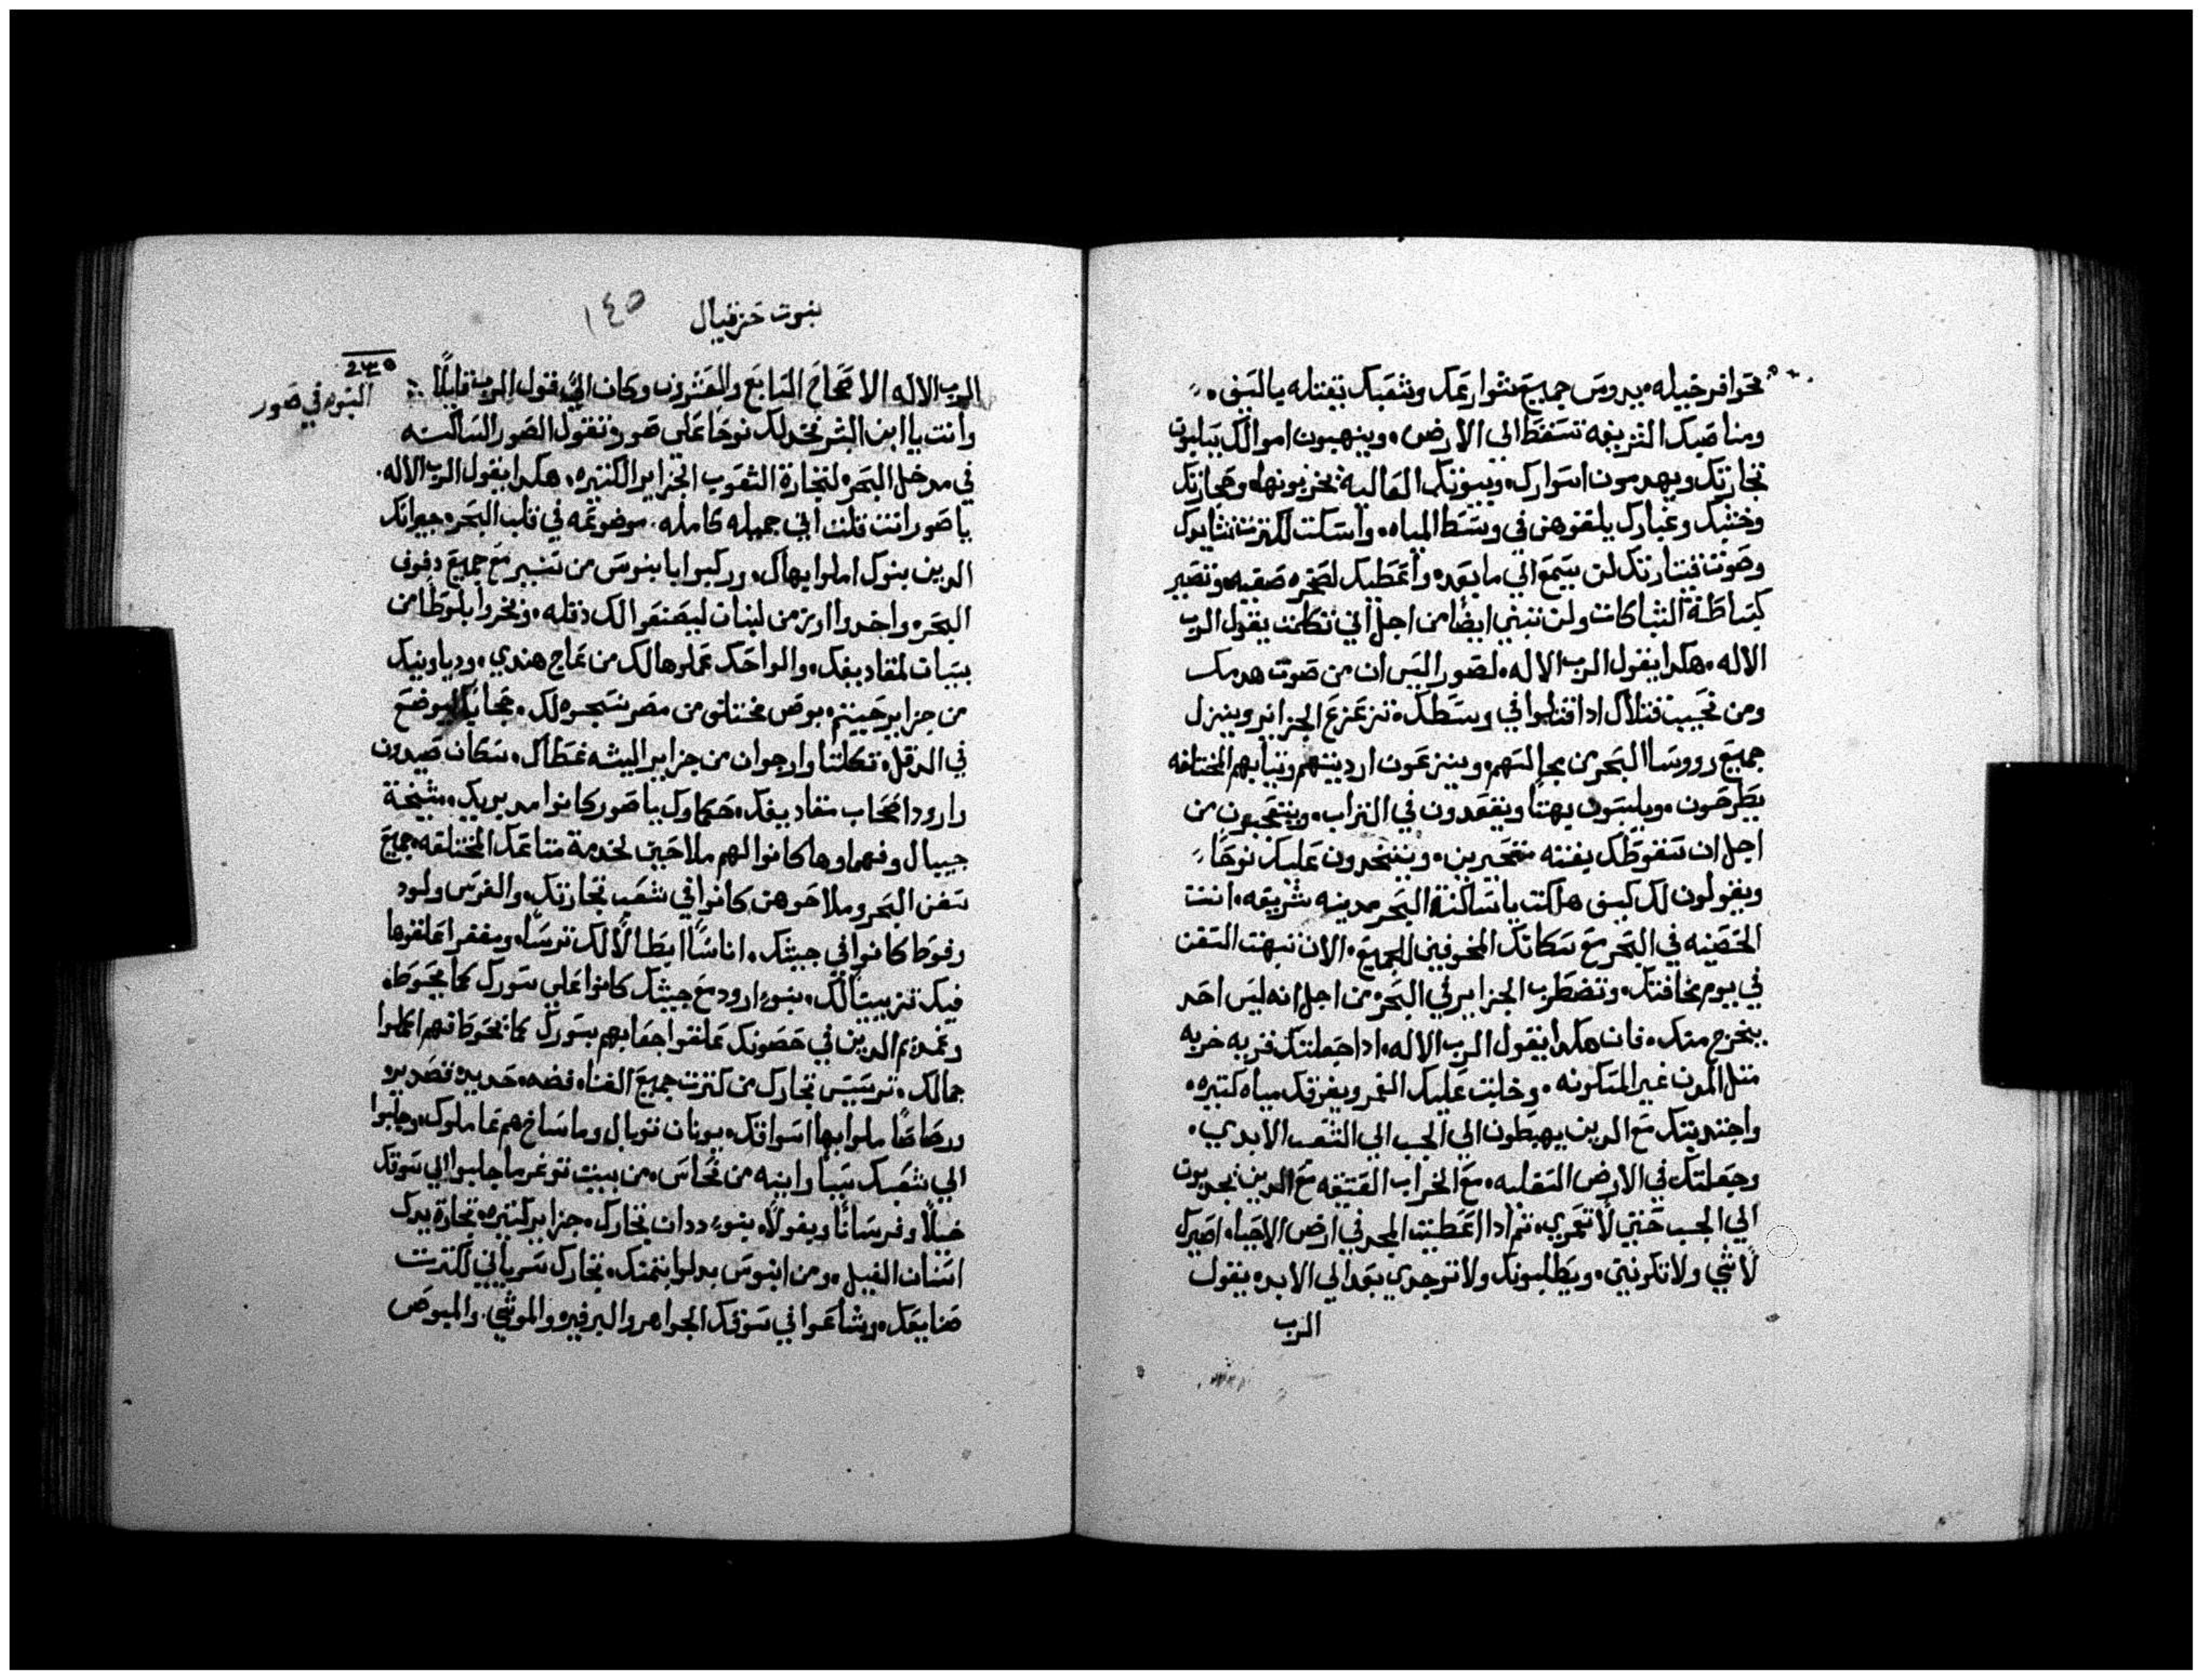 بحوافر خيله. يدوس جميع شوارعك وشعبك يقتله بالسيف.
ومناصبك الشريفه تسقط الي الارض. وينهبون اموالك يسلبون
تجارتك ويهدمون اسوارك. وبيوتك العاليه يخربونها. وحجارتك
وخشبك وغبارك يلقوهن في وسط المياه. واسكت لكثرت نشايدك
وصوت قيتارتك لن يسمع الي ما بعد. واعطيك لصخره صقيه. وتصير
كبساطة الشباكات ولن تبني ايضا من اجل اني تكلمت يقول الرب
الاله. هكدا يقول الرب الاله. لصور اليس ان من صوت هدمك
ومن نحيب قتلاك ادا قتلوا في وسطك. تزعزع الجزاير وينزل
جميع رووسا البحر من مجالسهم. وينزعون ارديتهم وتيابهم المختلفه
يطرحون. ويلبسون بهتا ويقعدون في التراب. ويتعجبون من
اجل ان سقوطك بغته متحيرين. ويتخدون عليك نوحا
ويقولون لك كيف هلكت يا ساكنة البحر مدينه شريفه. انت
الحصينه في البحر مع سكانك المخوفين للجميع. الان تبهت السفن
في يوم مخافتك. وتضطرب الجزاير في البحر. من اجل انه ليس احد
يخرج منك. فان هكدا يقول الرب الاله. ادا جعلتك قريه خربه
متل المدن غير المسكونه. وجلبت عليك الغمر ويغرقك مياه كتيره.
واحدرتك مع الدين يهبطون الي الجب الي الشعب الابدي.
وجعلتك في الارض السفليه. مع الخراب العتيقه مع الدين يحدرون
الي الجب حتي لا تعمري. تم ادا اعطيت المجد في ارض الاحيا. اصيرك
لا شي ولا تكونين. ويطلبونك ولا توجدي بعد الي الابد. يقول
الرب
نبوت حزقيال
١٤٥
الرب الاله الاصحاح السابع والعشرون وكان الي قول الرب قايلا
النوح في صور
وانت يا ابن البشر تخد لك نوحا علي صور. وتقول الصور الساكنه
في مدخل البحر. لتجارة الشعوب الجزاير الكتيره. هكدا يقول الرب الاله.
يا صور انت قلت اني جميله كامله. موضوعه في قلب البحر. جيرانك
الدين بنوك املوا بهاك. وركبوا يا بنوس من سنير مع جميع دفوف
البحر. واخدوا ارز من لبنان ليصنعوا لك دقله. ونخروا بلوطا من
بيسان لمقاديفك. والواحك عملوها لك من عاج هندي. ودياوينك
من جزاير حيتيم. بوص مختلف من مصر نسجوه لك. حجابك ليوضع
في الدقل. تكلتا وارجوان من جزاير اليشه غطاك. سكان صيدون
وارود اصحاب مقاديفك. حكماوك يا صور كانوا مدبريك. مشيخة
جيبال وفهماوها كانوا لهم ملاحين لخدمة متاعك المختلفه. جميع
سفن البحر وملاحوهن كانوا في شعب تجارتك. والفرس ولود
وفوط كانوا في جيشك. اناسا ابطالا لك ترسا. ومغفرا علقوها
فيك تزيينا لك. بنو ارود مع جيشك كانوا علي سورك كما يحوط.
وغمديم الدين في حصونك علقوا جعابهم بسورك كما نحوط فهم اكملوا
جمالك. ترسيس تجارك من كترت جميع الغنا. فضه. حديد. قصدير.
ورصاصا ملوا بها اسواقك. يونان توبال وماساخ هم عاملوك. وجلبوا
الي شعبك سبيا وانيه من نحاس. من بيت توغرما جلبوا الي سوقك
خيلا وفرسانا وبغولا. بنو ددان تجارك. جزاير كتيره. تجارة يدك
اسنان الفيل. ومن ابنوس بدلوا بتمنك. تجارك سرياني لكترت
صنايعك. وشاعوا في سوقك الجواهر والبرفير. والموشي. والمبوص